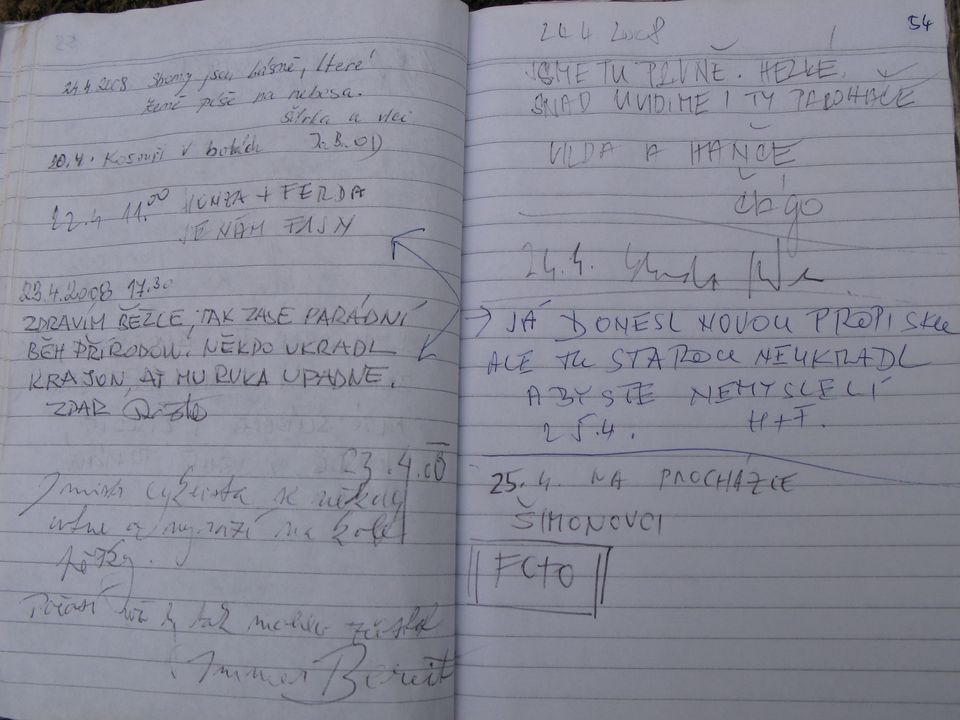 24.4.2008 Stromy jsou básně, které
země píše na nebesa.
Šárka a vlci
20.4. Kosouři v botách
22.4 11.00 HONZA + FERDA
JE NÁM FAJN
23.4.2008 17.30
ZDRAVÍM BĚŽCE, TAK ZASE PARÁDNÍ
BĚH PŘÍRODOU. NĚKDO UKRADL
KRAJON, AŤ MU RUKA UPADNE.
ZDAR
23.4.08
cyklista se někdy
na kole
pěšky.
Počasí by tak mohlo zůstat
Immer Bereit
54
24.4 2008
JSME TU PRVNĚ. HEZKÉ.
SNAD UVIDÍME I TY PAROHÁČE
VILDA A HANČE
Čágo
24.4.
JÁ DONESL NOVOU PROPISKU
ALE TU STAROU NEUKRADL
ABYSTE NEMYSLELI
25.4. H+F.
25.4. NA PROCHÁZCE
ŠIMONOVCI
FCTO